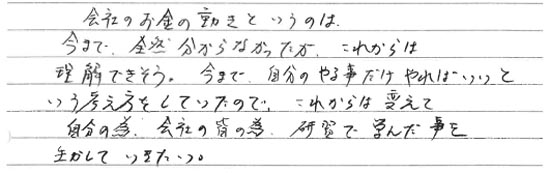 会社のお金の動きというのは、
今まで、全然分からなかったが、これからは
理解できそう。今まで、自分のやる事だけやればいいと
いう考え方をしていたので、これからは変えて
自分の為、会社の皆の為、研習で学んだ事を
生かしていきたい。